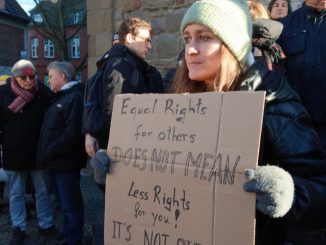 Equal Rights
for others
DOES NOT MEAN
Less Rights
for you!
IT'S NOT